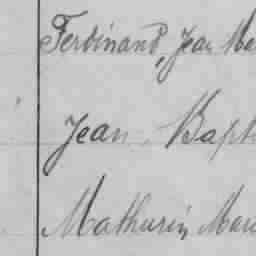 Ferdinand, Jean Ma
Jean Bapt
Mathurin Mar